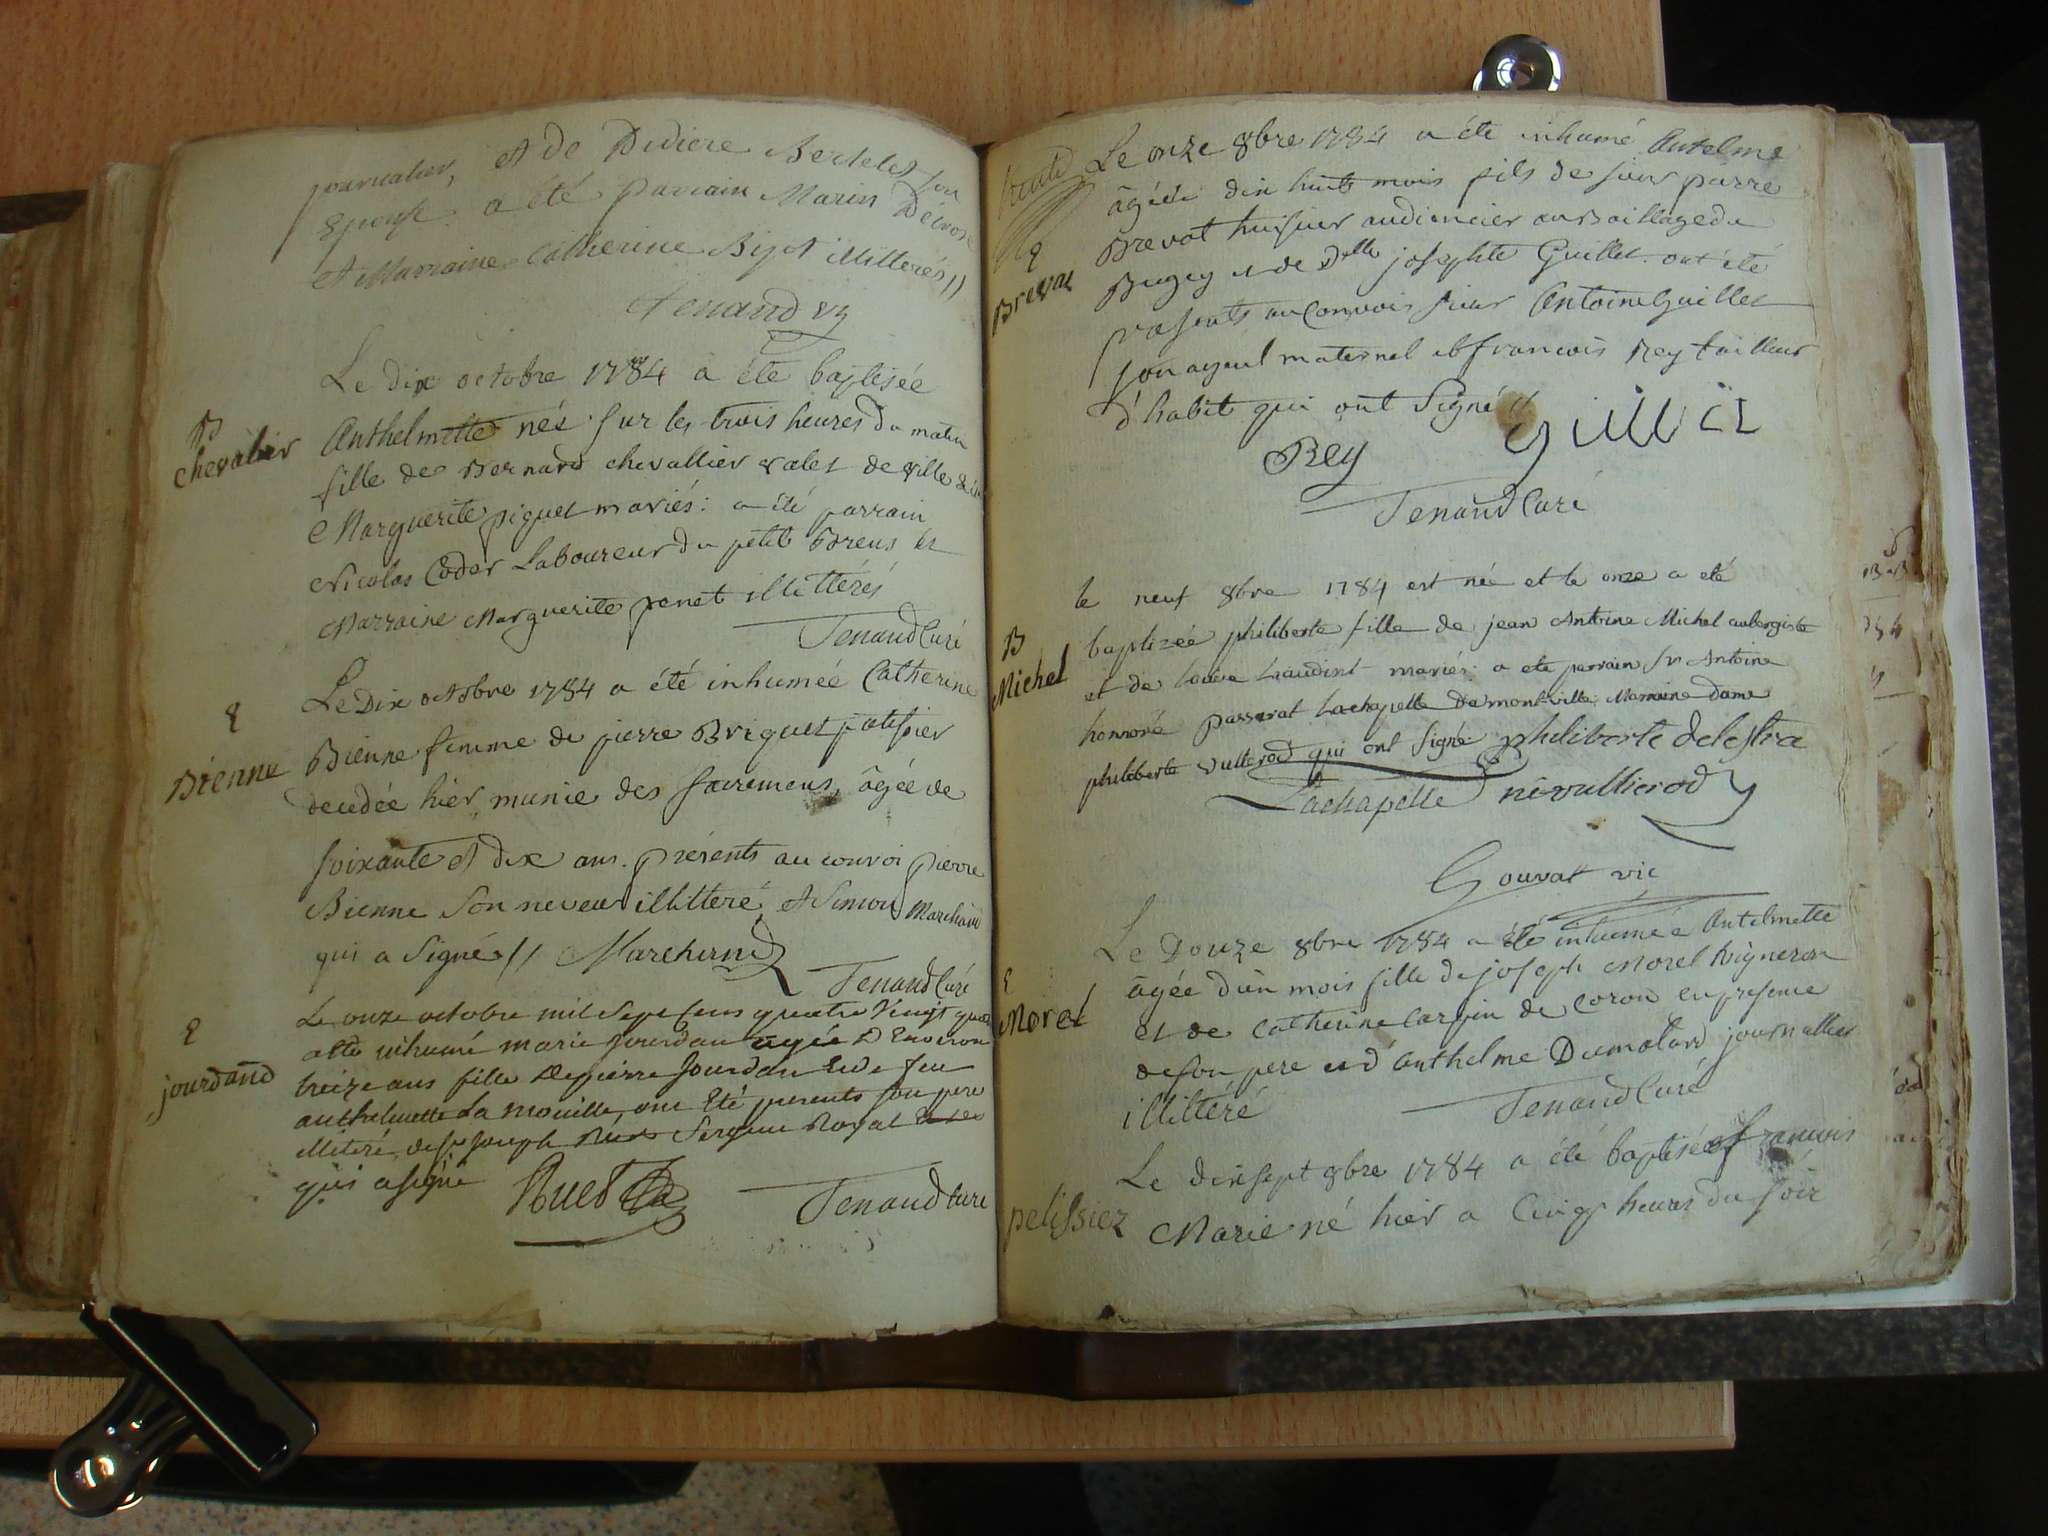 journalier, et de Didiere Bertelet son
Epouse. a été parrain Marin
et Marraine Catherine Bizot illitterés //
Tenand
B
Chevalier
Le dix octobre 1784 a été baptisée
Anthelmette née sur les trois heures du matin
fille de Bernard chevallier valet de ville &
Marguerite piquet mariés : a été parrain
Nicolas Coder Laboureur du petit Brens et
Marraine Marguerite penet illittérés
Tenand Curé
Bienne
Le Dix octobre 1784 a été inhumée Catherine
Bienne femme de pierre Briquet patissier
decedée hier, munie des sacremens, âgée de
soixante et dix ans. présents au convoi pierre
Bienne son neveu illitteré et Simon Marchand
qui a signé // Marchand
Tenand Curé
jourdand
Le onze octobre mil sept cens quatre vingt quatre
a été inhumé marie Jourdan agée D'Environ
treize ans fille de pierre Jourdan et de feu
anthelmette La mouille, ont été presents son pere
illiteré, et Sr joseph Sergent Royal
qui a signé Ruet
Tenand Curé
Brevat
Le onze 8bre 1784 a été inhumé Antelme
âgé de dix huit mois fils de sieur pierre
Brevat huissier audiencier au Baillage du
Bugey et de Delle josephte Guillet. ont été
présents au Convois sieur Antoine Guillet
son ayeul maternel et francois Rey tailleur
d'habit qui ont signé //
Rey
Guillet
Tenand Curé
B
Michel
le neuf 8bre 1784 est née et le onze a eté
baptizée philiberte fille de jean Antoine Michel aubergiste
et de Laudint mariés : a ete parrain Sr Antoine
honnoré passerat Lachapelle De montville Marraine dame
philiberte vullierod qui ont signé philiberte delestra
Lachapelle
né vullierod
Gouvat vic
Morel
Le Douze 8bre 1784 a été inhumée Antelmette
âgée d'un mois fille de joseph Morel Vigneron
et de Catherine Carrin de Coron en presence
de son pere et d'anthelme Dumolard journallier
illitéré
Tenand Curé
pelissiez
Le dixsept 8bre 1784 a été baptisée francois
Marie né hier a Cinq heures du soir